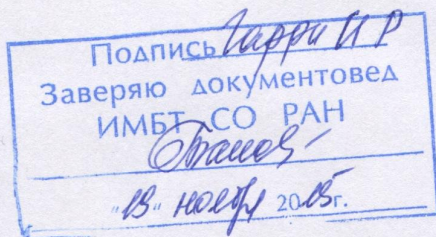 Подпись Гарри И Р
Заверяю документовед
ИМБТ СО РАН
"19" ноября 2015г.